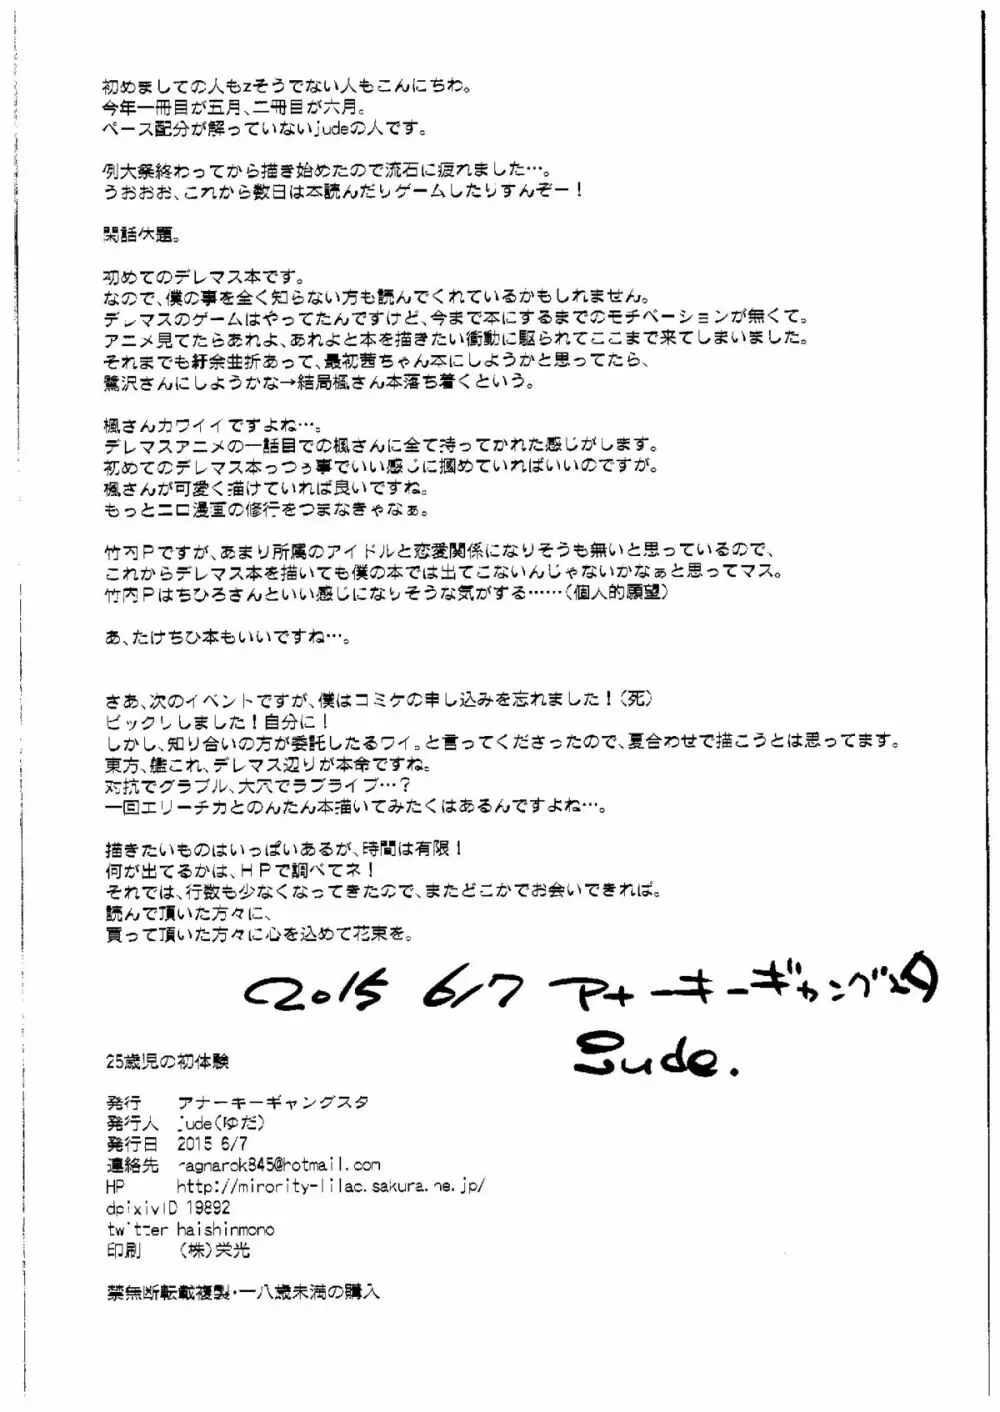 初めましての人もzそうでない人もこんにちわ。
今年一冊目が五月、二冊目が六月。
ペース配分が解っていないjudeの人です。
例大祭終わってから描き始めたので流石に疲れました…。
うおおお、これから数日は本読んだりゲームしたりすんぞー！
閑話休題。
初めてのデレマス本です。
なので、僕の事を全く知らない方も読んでくれているかもしれません。
デレマスのゲームはやってたんですけど、今まで本にするまでのモチベーションが無くて。
アニメ見てたらあれよ、あれよと本を描きたい衝動に駆られてここまで来てしまいました。
それまでも紆余曲折あって、最初茜ちゃん本にしようかと思ってたら、
鷺沢さんにしようかな→結局楓さん本落ち着くという。
楓さんカワイイですよね…。
デレマスアニメの一話目での楓さんに全て持ってかれた感じがします。
初めてのデレマス本っつぅ事でいい感じに掴めていればいいのですが。
楓さんが可愛く描けていれば良いですね。
もっとニロ漫画の修行をつまなきゃなぁ。
竹内Pですが、あまり所属のアイドルと恋愛関係になりそうも無いと思っているので、
これからデレマス本を描いても僕の本では出てこないんじゃないかなぁと思ってマス。
竹内Pはちひろさんといい感じになりそうな気がする……（個人的願望）
あ、たけちひ本もいいですね…。
さあ、次のイベントですが、僕はコミケの申し込みを忘れました！（死）
ビックリしました！自分に！
しかし、知り合いの方が委託したるワイ。と言ってくださったので、夏合わせで描こうとは思ってます。
東方、艦これ、デレマス辺りが本命ですね。
対抗でグラブル、大穴でラブライブ…？
一回エリーチカとのんたん本描いてみたくはあるんですよね…。
描きたいものはいっぱいあるが、時間は有限！
何が出てるかは、HPで調べてネ！
それでは、行数も少なくなってきたので、またどこかでお会いできれば。
読んで頂いた方々に、
買って頂いた方々に心を込めて花束を。
2015 6/7 アナーキーギャングスタ
jude.
25歳児の初体験
発行 アナーキーギャングスタ
発行人 jude（ゆだ）
発行日 2015 6/7
連絡先 ragnarok845@hotmail.com
HP http://mirority-lilac.sakura.ne.jp/
dpixivID 19892
twitter haishinmono
印刷 （株）栄光
禁無断転載複製・一八歳未満の購入